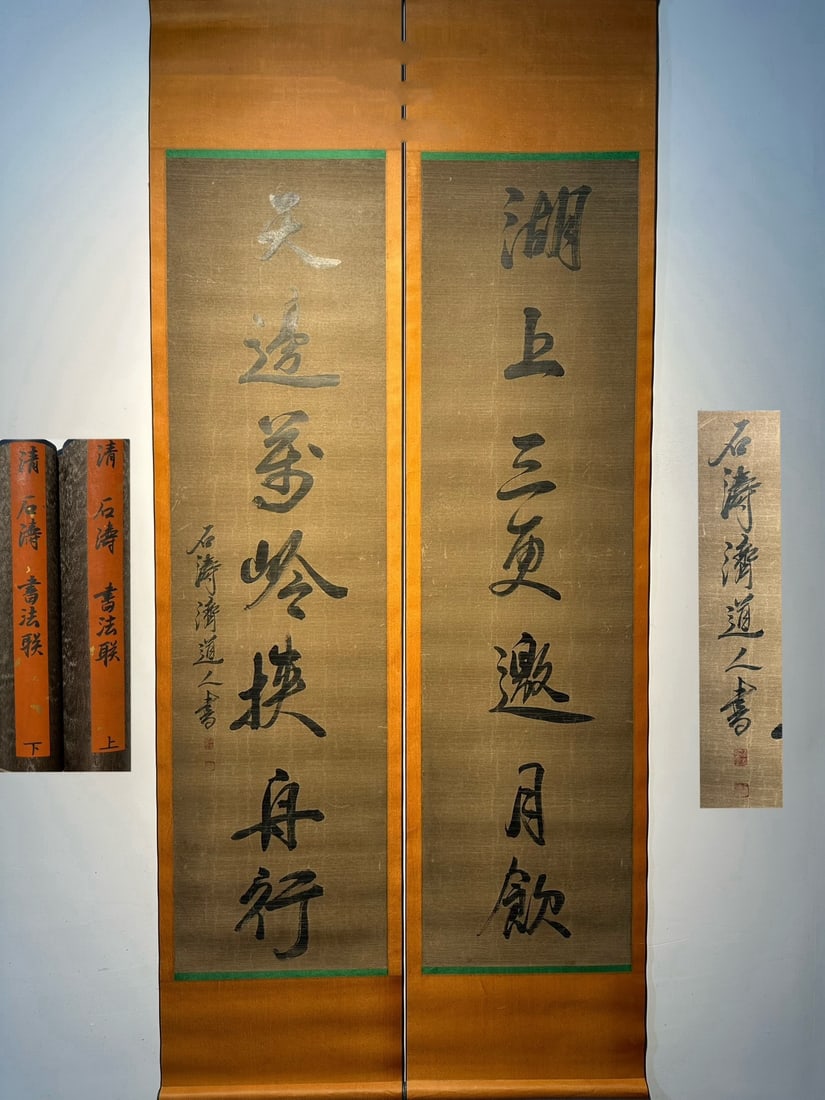 湖上三更邀月飲
天邊萬嶺挾舟行
石濤濟道人書
清 石涛 书法联 下
清 石涛 书法联 上
石濤濟道人書